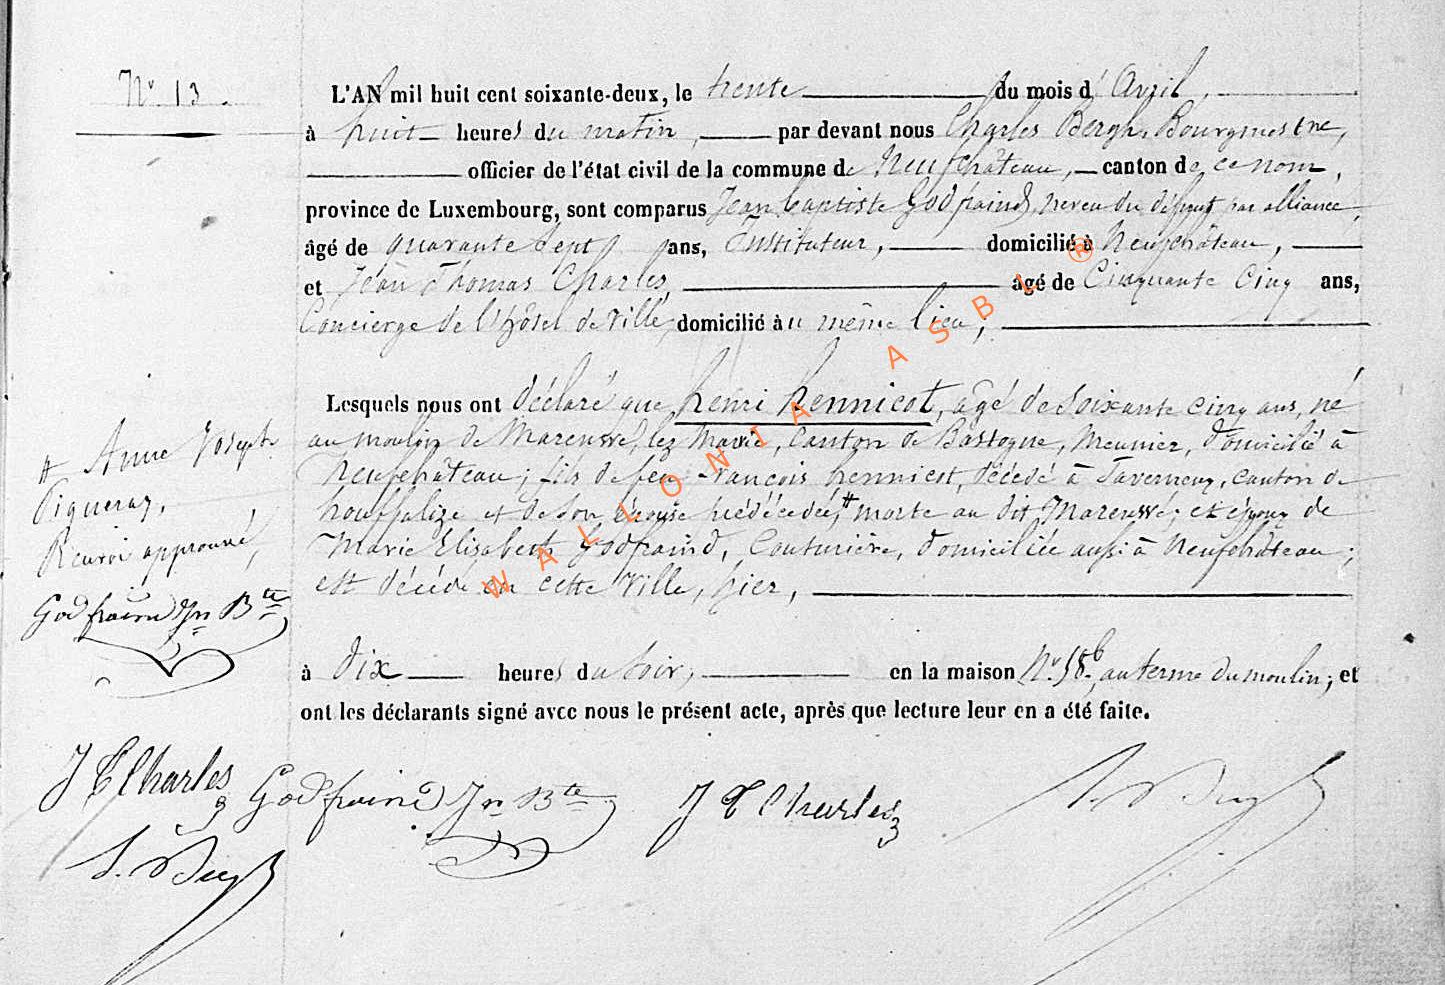 N° 13.
L'AN mil huit cent soixante-deux, le trente du mois d'Avril,
à huit heures du matin, par devant nous Charles Bergh, Bourgmestre,
officier de l'état civil de la commune de Neufchâteau, canton de ce nom,
province de Luxembourg, sont comparus Jean Baptiste Godfraind, neveu du défunt par alliance,
âgé de quarante sept ans, Instituteur, domicilié à Neufchâteau,
et Jean Thomas Charles, âgé de Cinquante Cinq ans,
Concierge de l'hôtel de Ville, domicilié au même lieu;
Lesquels nous ont déclaré que henri hennicot, âgé de soixante cinq ans, né
au moulin de Marenwé, lez Mavie, Canton de Bastogne, meunier, domicilié à
Neufchâteau; fils de feu François hennicot, décédé à Taverneux, canton de
houffalize et de son épouse prédécedée, # morte au dit Marenwé; et époux de
Marie Elisabeth Godfraind, Couturière, domiciliée aussi à Neufchâteau;
est décédé en cette Ville, hier,
à dix heures du soir, en la maison N° 58b, au terme du moulin; et
ont les déclarants signé avec nous le présent acte, après que lecture leur en a été faite.
# Anne Joseph
Piqueray,
Renvoi approuvé,
Godfraind Jn Bte
J T Charles
Godfraind Jn Bte
J T Charles
WALLONIA ASBL ®